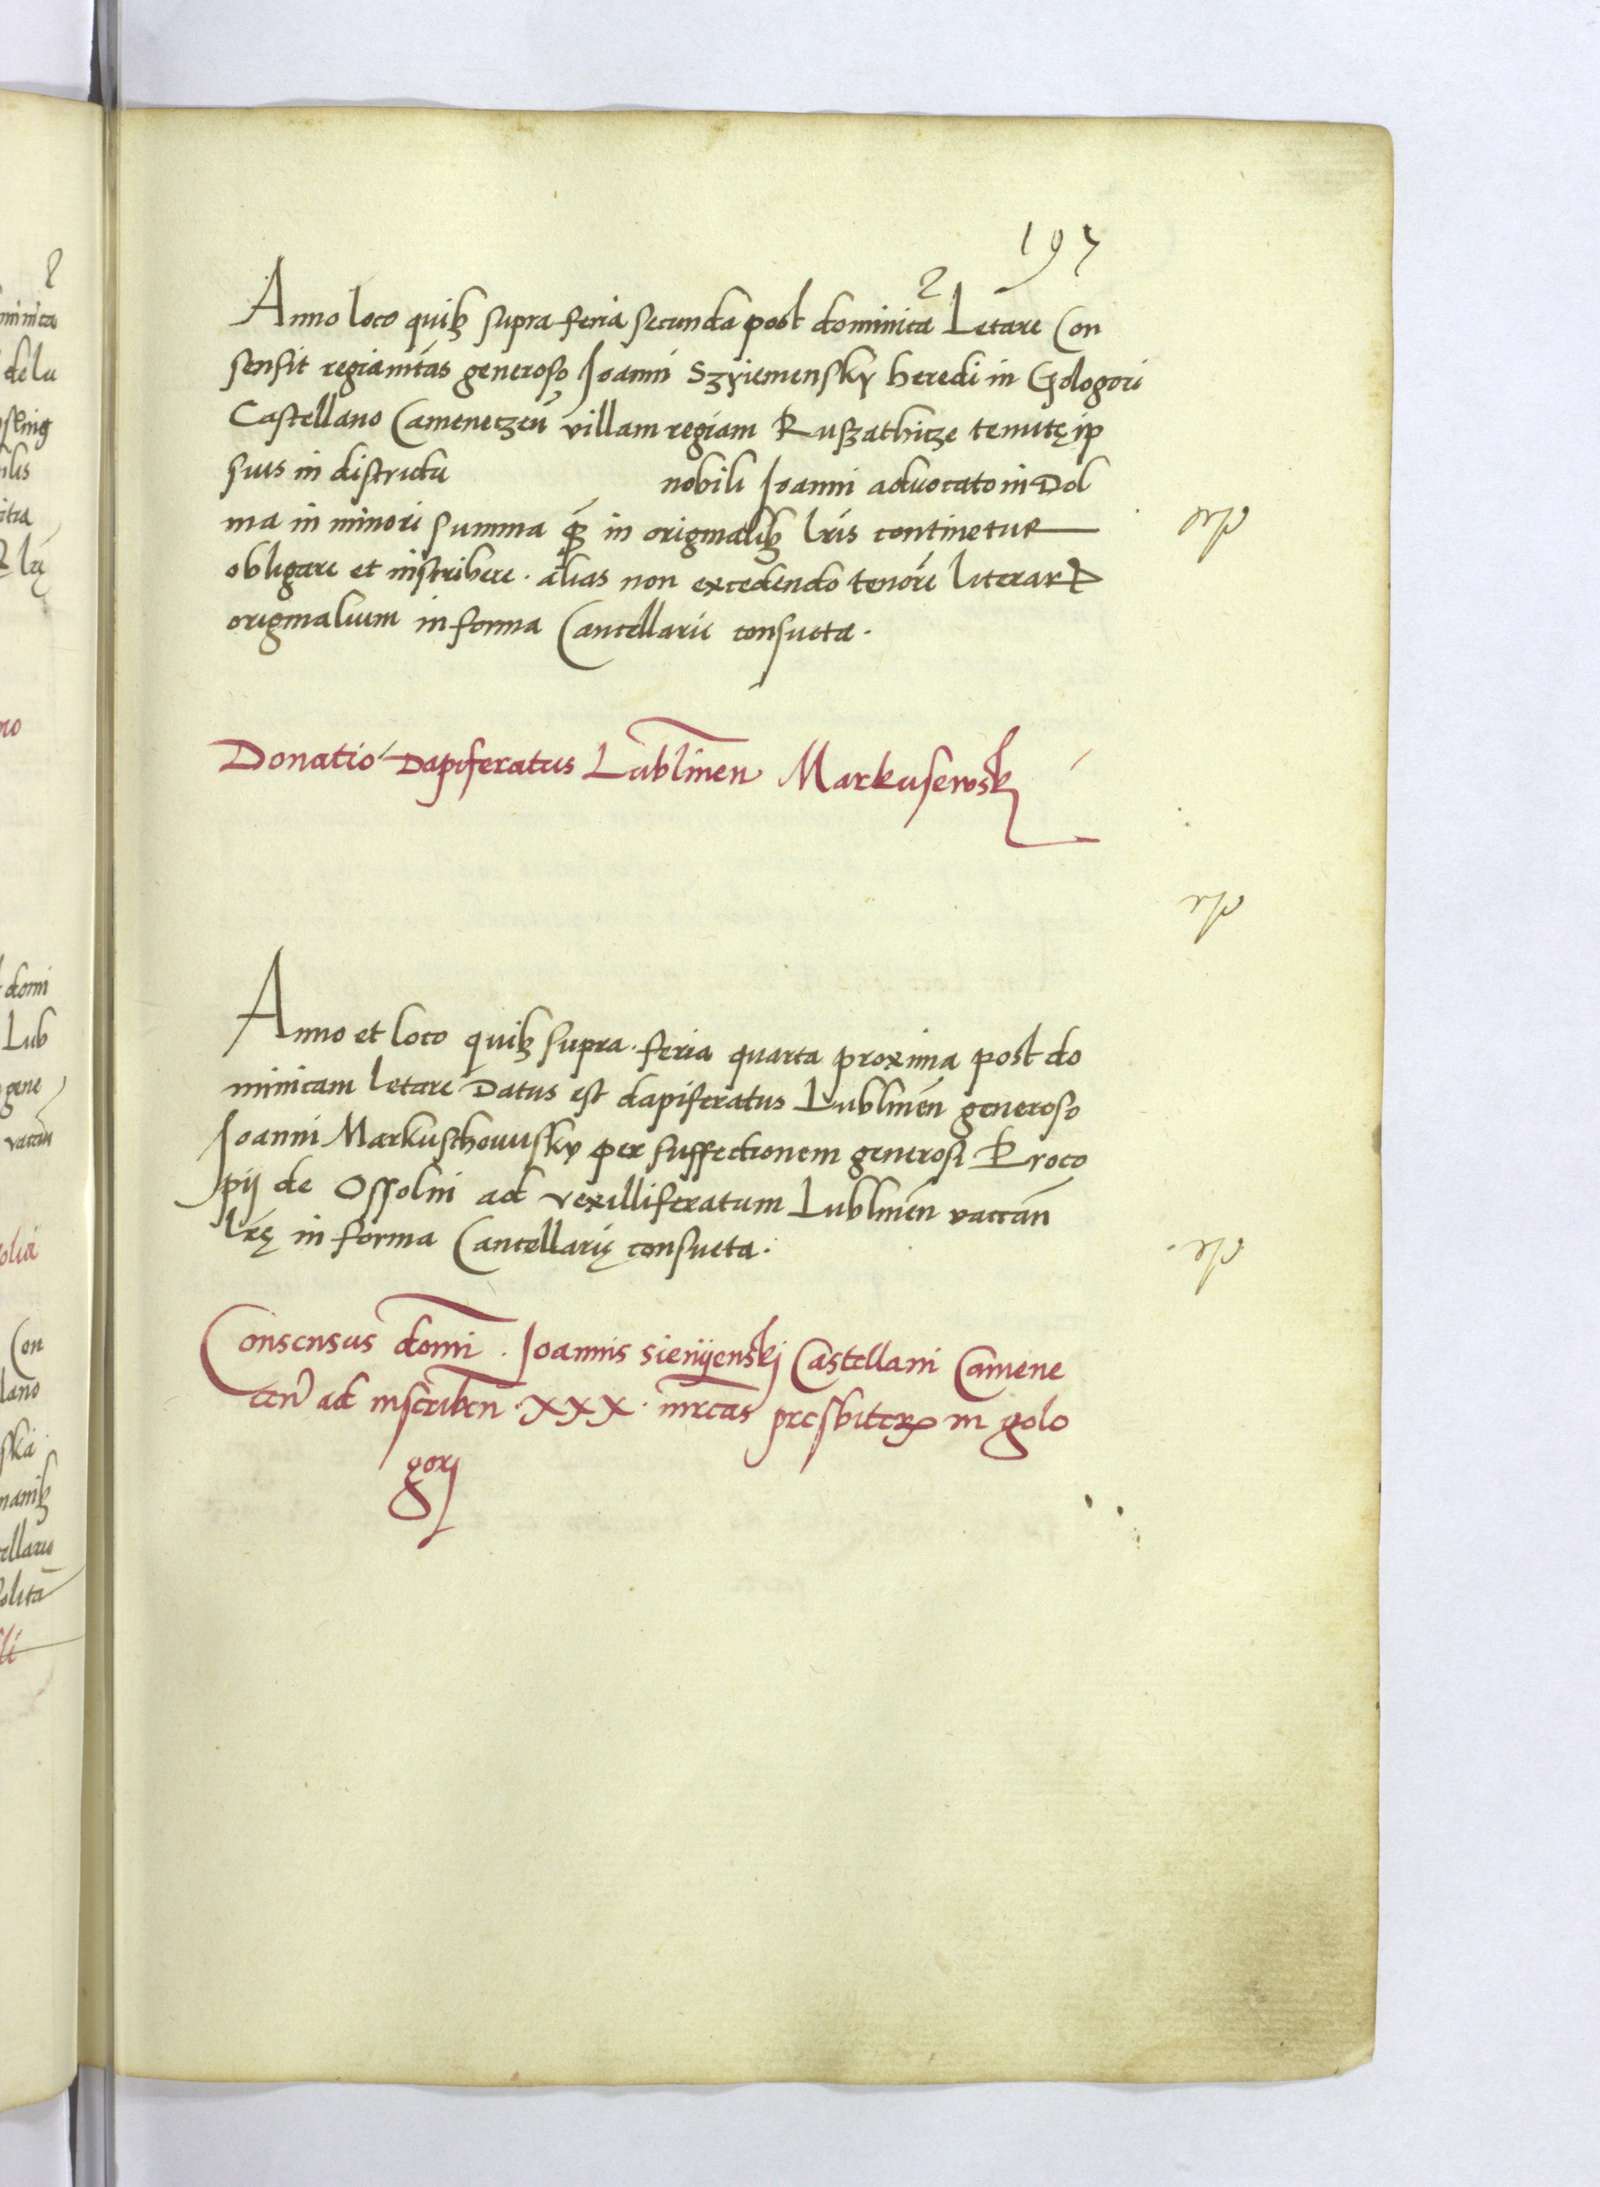 197
2
Anno loco quibꝫ supra feria secunda post dominicā Letare Con
sensit regia mtās generoso Joanni Szyiemensky heredi in Gologori
Castellano Cameneczeñ villam regiam Ruszathicze tenutę ip
sius in districtu nobili Joanni advocato in Dol
ma in minori summa ꝙ̃ in originalibꝫ lrīs continetur
obligare et inscribere. alias non excedendo tenorē literarꝝ
originalium in forma Cancellarie consueta.
Donatio Dapiferatus Lublinen̄ Markusewsk
Anno et loco quibꝫ supra. feria quarta proxima post do
minicam letare Datus est dapiferatus Lublineñ generoso
Joanni Markuschowsky per suffectionem generosi Proco
pij de Ossolin ad vexilliferatum Lublineñ vaccañ
Lrę̄ in forma Cancellarię consueta.
Consensus domī. Joannis sienyenskj Castellani Camene
cen̄ ad inscriben̄. XXX. mrcas presbiterꝫ in golo
gorj